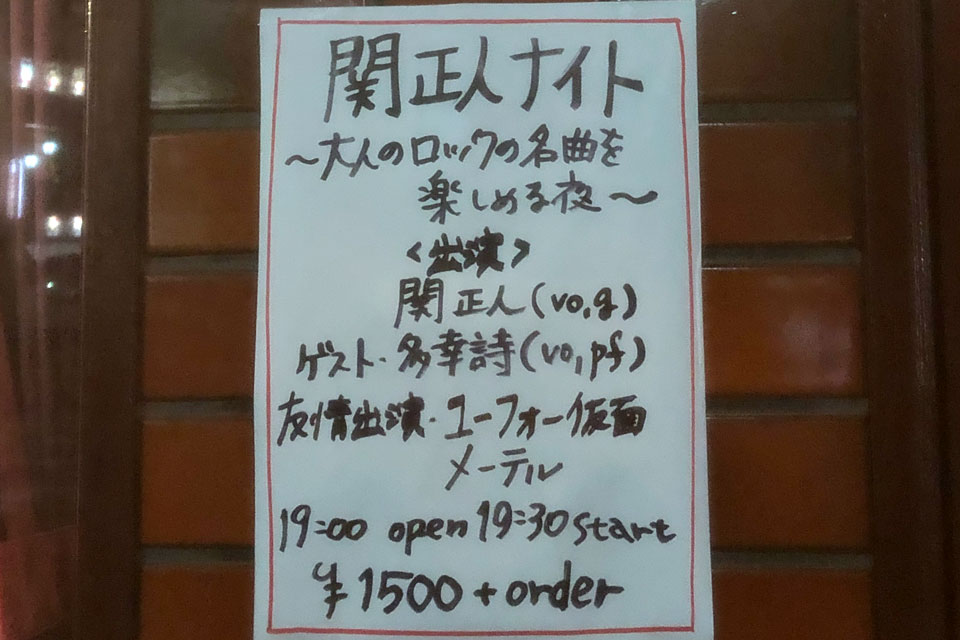 関正人ナイト
～大人のロックの名曲を
楽しめる夜～
<出演>
関正人(vo,g)
ゲスト・多幸詩(vo,pf)
友情出演・ユーフォー仮面
メーテル
19:00 open 19:30 start
¥1500+order